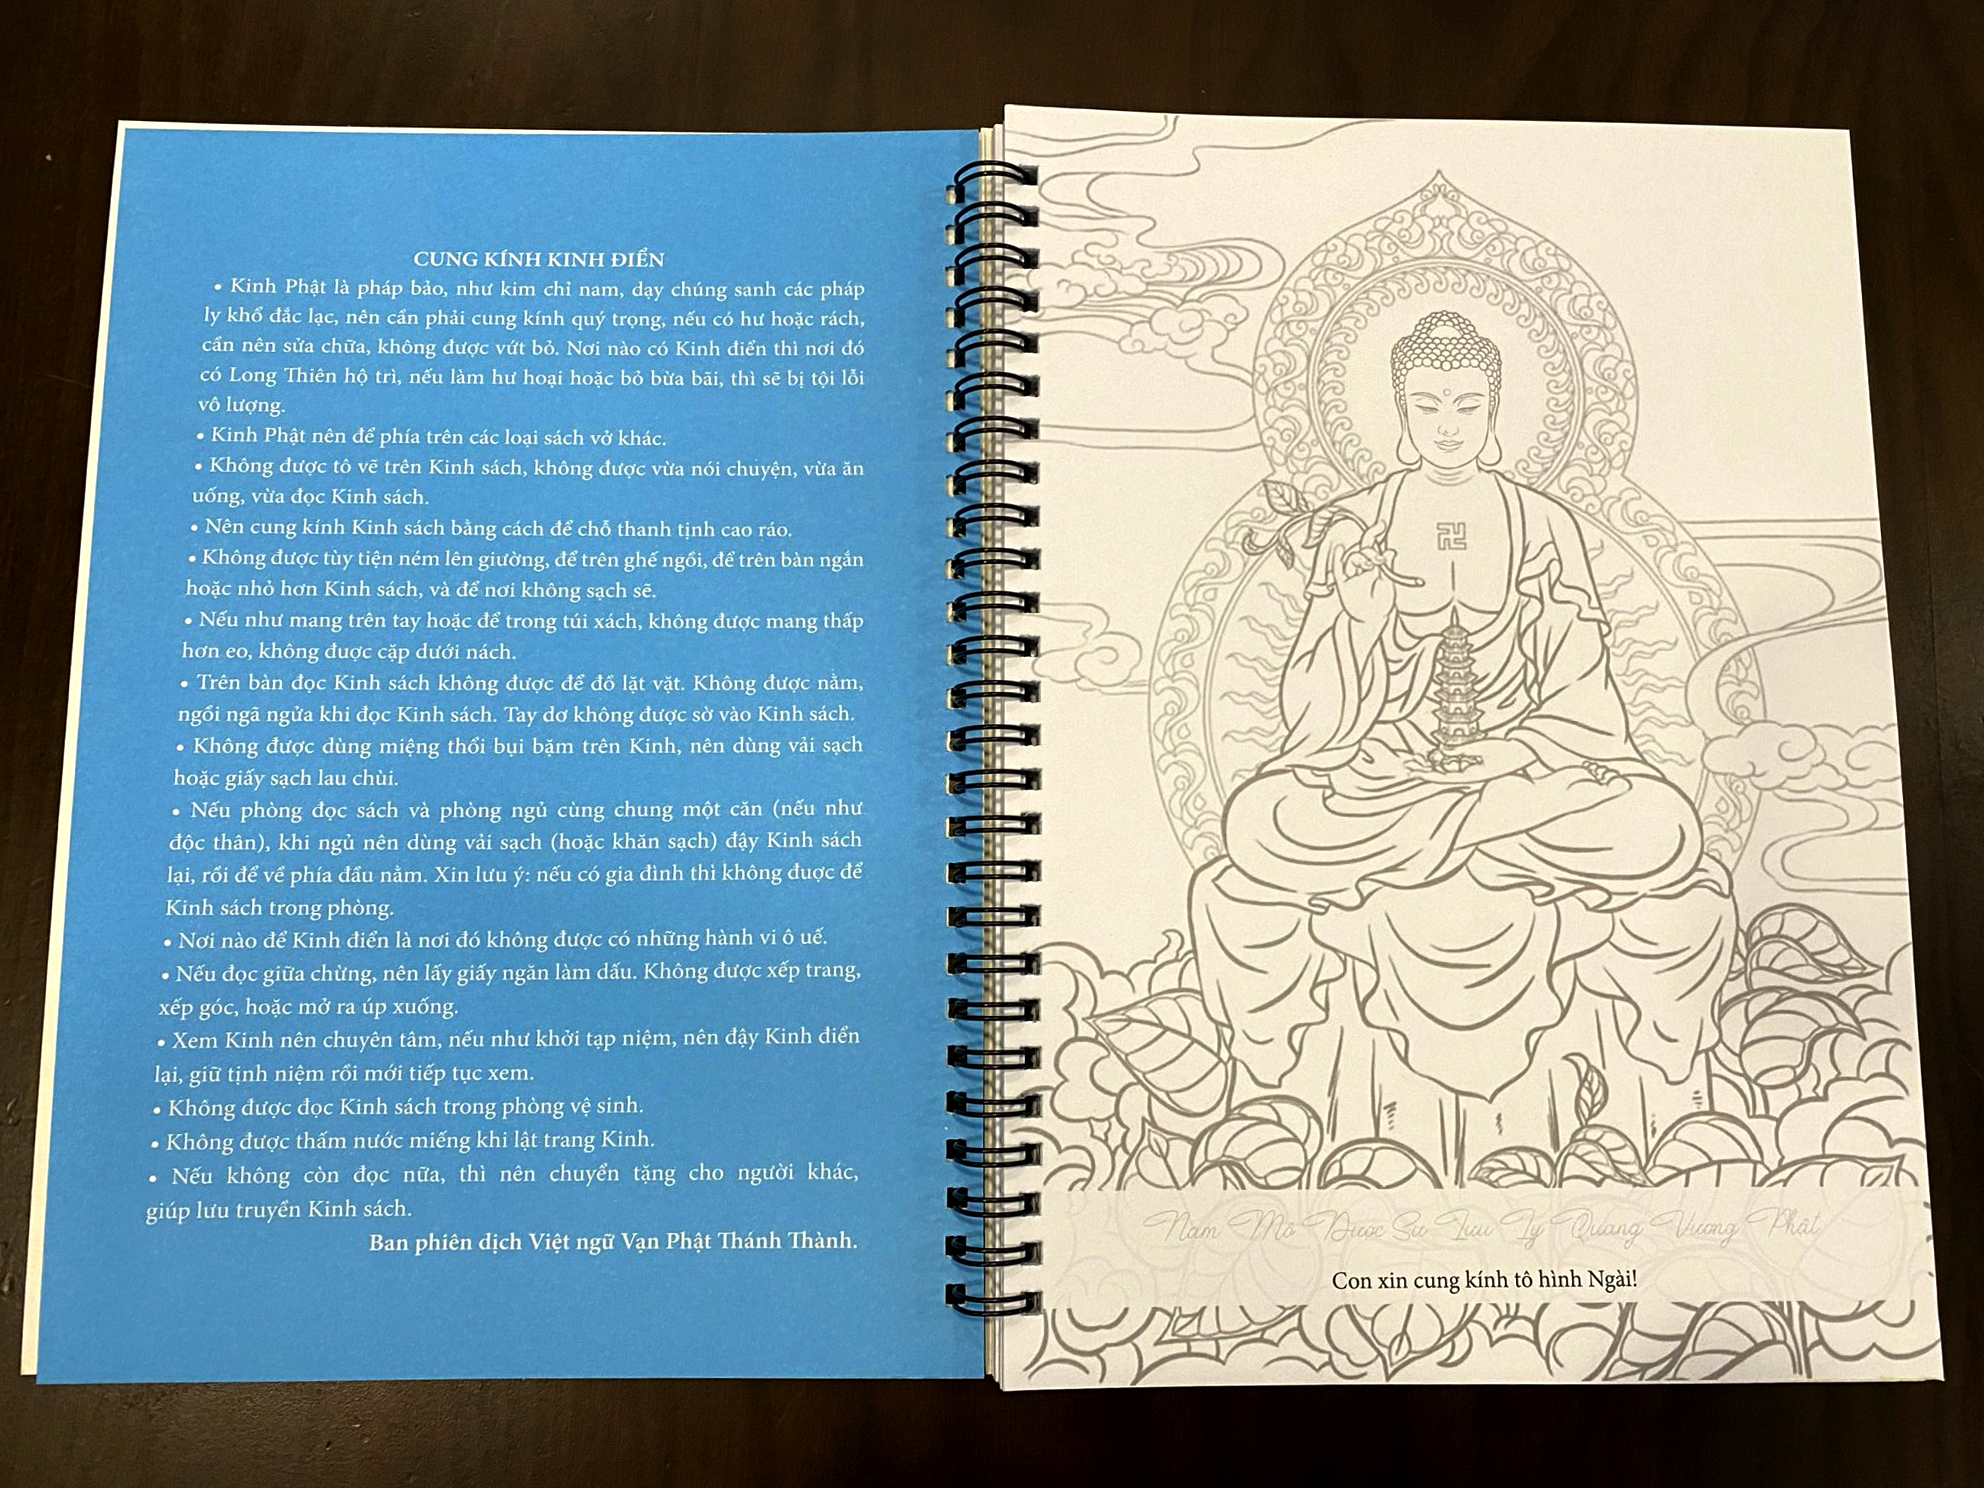 CUNG KÍNH KINH ĐIỂN
• Kinh Phật là pháp bảo, như kim chỉ nam, dạy chúng sanh các pháp
ly khổ đắc lạc, nên cần phải cung kính quý trọng, nếu có hư hoặc rách,
cần nên sửa chữa, không được vứt bỏ. Nơi nào có Kinh điển thì nơi đó
có Long Thiên hộ trì, nếu làm hư hoại hoặc bỏ bừa bãi, thì sẽ bị tội lỗi
vô lượng.
• Kinh Phật nên để phía trên các loại sách vở khác.
• Không được tô vẽ trên Kinh sách, không được vừa nói chuyện, vừa ăn
uống, vừa đọc Kinh sách.
• Nên cung kính Kinh sách bằng cách để chỗ thanh tịnh cao ráo.
• Không được tùy tiện ném lên giường, để trên ghế ngồi, để trên bàn ngắn
hoặc nhỏ hơn Kinh sách, và để nơi không sạch sẽ.
• Nếu như mang trên tay hoặc để trong túi xách, không được mang thấp
hơn eo, không đuợc cặp dưới nách.
• Trên bàn đọc Kinh sách không được để đồ lặt vặt. Không được nằm,
ngồi ngã ngửa khi đọc Kinh sách. Tay dơ không được sờ vào Kinh sách.
• Không được dùng miệng thổi bụi bặm trên Kinh, nên dùng vải sạch
hoặc giấy sạch lau chùi.
• Nếu phòng đọc sách và phòng ngủ cùng chung một căn (nếu như
độc thân), khi ngủ nên dùng vải sạch (hoặc khăn sạch) đậy Kinh sách
lại, rồi để về phía đầu nằm. Xin lưu ý: nếu có gia đình thì không đuợc để
Kinh sách trong phòng.
• Nơi nào để Kinh điển là nơi đó không được có những hành vi ô uế.
• Nếu đọc giữa chừng, nên lấy giấy ngăn làm dấu. Không được xếp trang,
xếp góc, hoặc mở ra úp xuống.
• Xem Kinh nên chuyên tâm, nếu như khởi tạp niệm, nên đậy Kinh điển
lại, giữ tịnh niệm rồi mới tiếp tục xem.
• Không được đọc Kinh sách trong phòng vệ sinh.
• Không được thấm nước miếng khi lật trang Kinh.
• Nếu không còn đọc nữa, thì nên chuyển tặng cho người khác,
giúp lưu truyền Kinh sách.
Ban phiên dịch Việt ngữ Vạn Phật Thánh Thành.
卍
Nam Mô Dược Sư Lưu Ly Quang Vương Phật
Con xin cung kính tô hình Ngài!